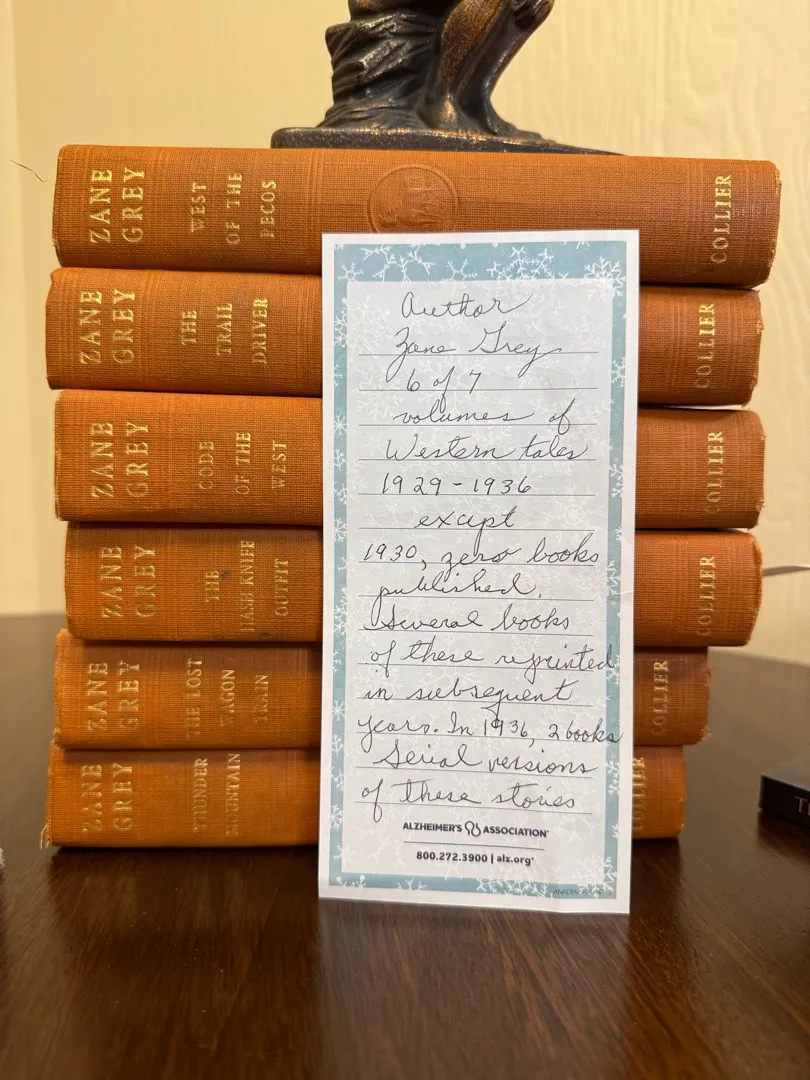 ZANE GREY
WEST OF THE PECOS
COLLIER
ZANE GREY
THE TRAIL DRIVER
COLLIER
ZANE GREY
CODE OF THE WEST
COLLIER
ZANE GREY
THE HASH KNIFE OUTFIT
COLLIER
ZANE GREY
THE LOST WAGON TRAIN
COLLIER
ZANE GREY
THUNDER MOUNTAIN
COLLIER
Author
Zane Grey
6 of 7
volumes of
Western tales
1929-1936
except
1930, zero books
published.
Several books
of these reprinted
in subsequent
years. In 1936, 2 books
Serial versions
of these stories
ALZHEIMER'S ASSOCIATION
800.272.3900 | alz.org